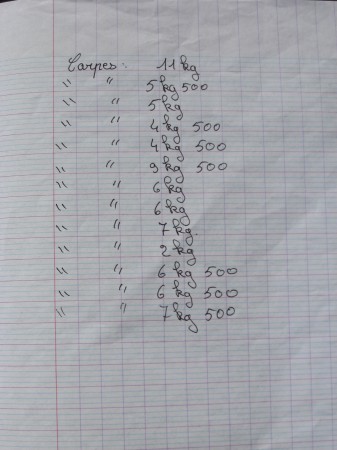 Carpes : 11 kg
" " 5 kg 500
" " 5 kg
" " 4 kg 500
" " 4 kg 500
" " 9 kg 500
" " 6 kg
" " 6 kg
" " 7 kg.
" " 2 kg
" " 6 kg 500
" " 6 kg 500
" " 7 kg 500